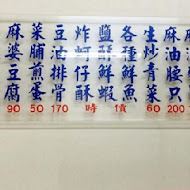 麻婆豆腐 90
菜脯煎蛋 50
豆油排骨 170
炸蚵仔酥
鹽酥鮮蝦
各種鮮魚
時價
生炒青菜 60
麻油腰 200